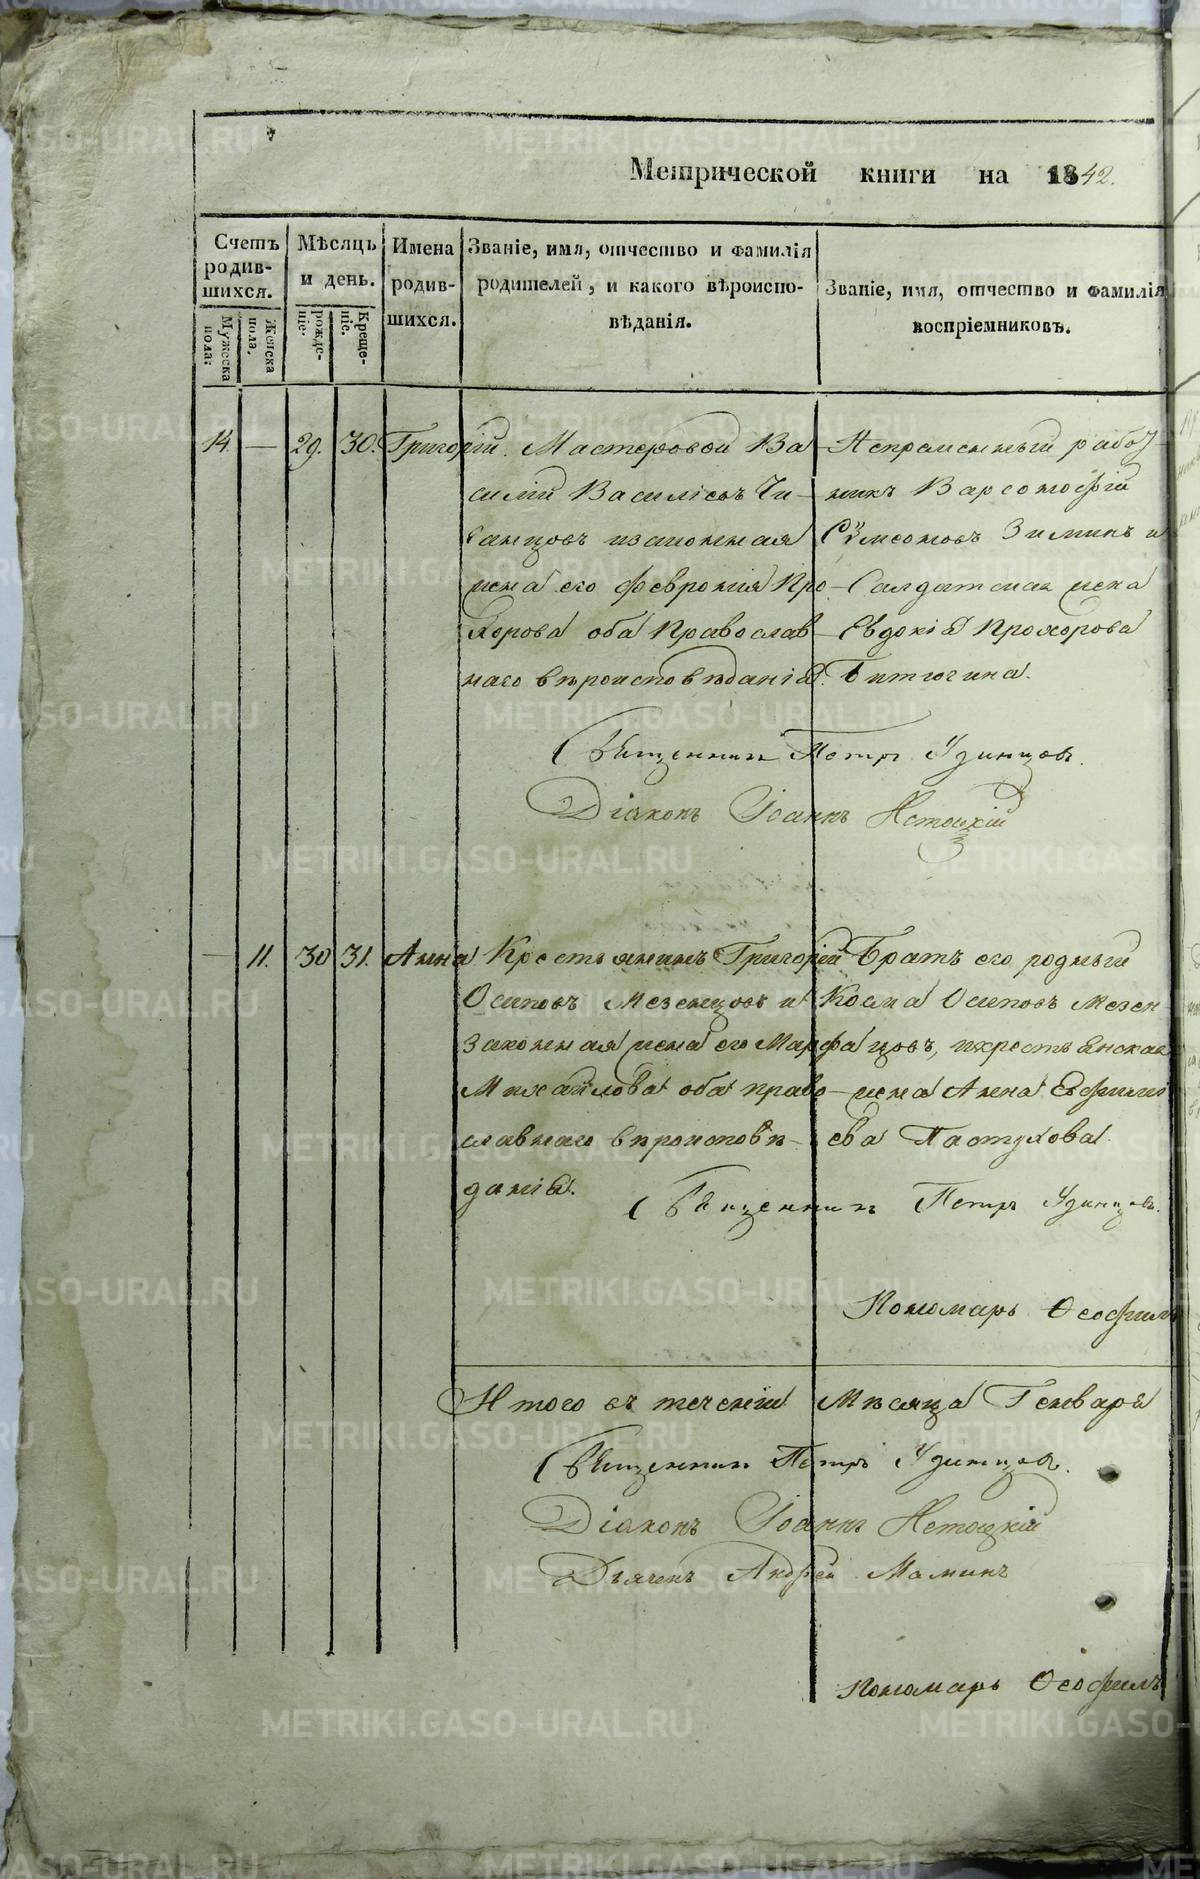 Метрической книги на 1842.
Счетъ родив-шихся.
Мужеска пола.
Женска пола.
Мѣсяцъ и день.
рожде-ніе.
Креще-ніе.
Имена родив-шихся.
Званіе, имя, отчество и фамилія
родителей, и какого вѣроиспо-
вѣданія.
Званіе, имя, отчество и фамилія
воспріемниковъ.
14. — 29. 30. Григорій. Мастеровой Ва-
силій Васильевъ Чи-
ганцовъ и законная
жена его Феврония Про-
хорова оба Православ-
наго вѣроисповѣданія.
Непременный работ-
никъ Варсонофій
Сѵмеоновъ Зиминъ и
Салдатская жена
Евдокія Прохорова
Битюгина.
Священникъ Петръ Удинцов.
Діаконъ Іоаннъ
— 11. 30 31. Анна Крестьянинъ Григорій
Осиповъ Мезенцовъ и
Законная жена его Марфа
Михайлова оба право-
славнаго вѣроисповѣ-
данія.
Братъ его родный
Косма Осиповъ Мезен-
цовъ, и крестьянская
жена Анна Ефимо
ева Пастухова.
Священникъ Петръ Удинцовъ.
Пономарь Ѳеофилъ
Итого въ теченіи Мѣсяца Генваря
Священникъ Петръ Удинцов.
Діаконъ Іоаннъ
Дьячекъ Андрей Маминъ
Пономарь Ѳеофилъ
METRIKI.GASO-URAL.RU